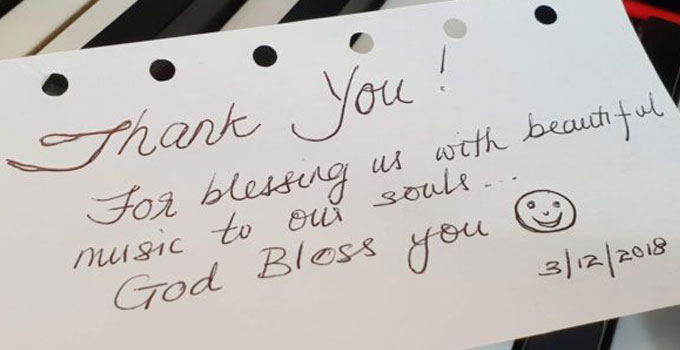 Thank You!
For blessing us with beautiful
music to our souls...
God Bless you
3/12/2018